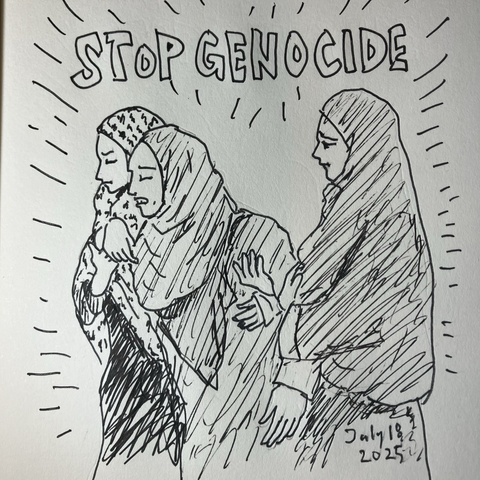 STOP GENOCIDE
July 18
2025